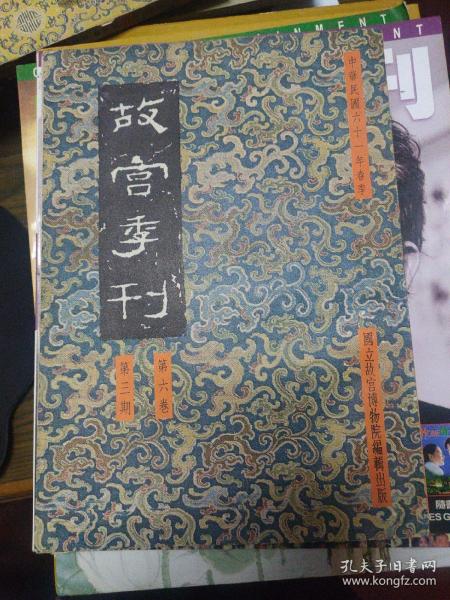 中華民國六十一年春季
故宮季刊
第六卷
第三期
國立故宮博物院編輯出版
NMENT
NT
刊
ES G
孔夫子旧书网
www.kongfz.com